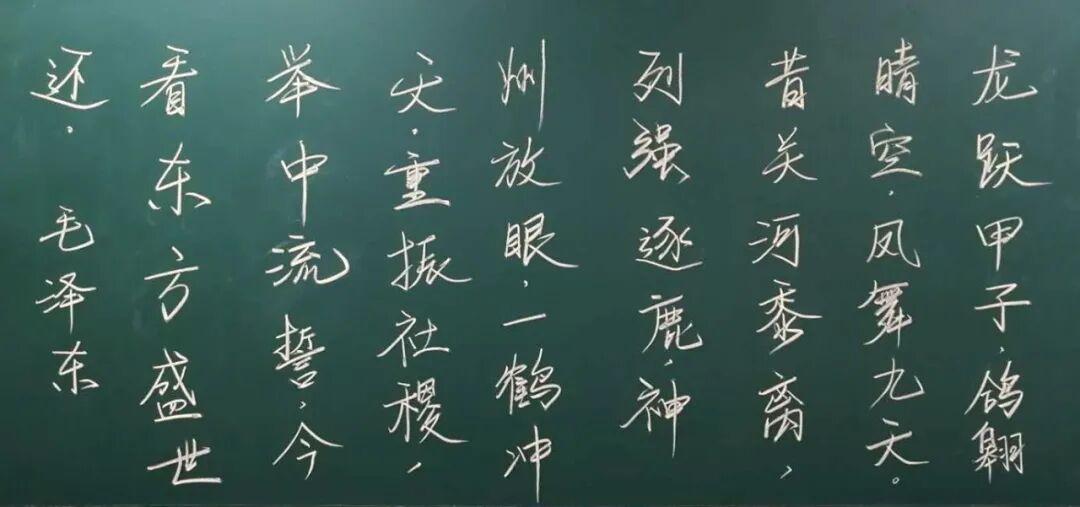 龙跃甲子，鸽翱
晴空，凤舞九天。
昔关河黍离，
列强逐鹿，神
州放眼，一鹤冲
天。重振社稷，
举中流誓，今
看东方盛世
还。毛泽东